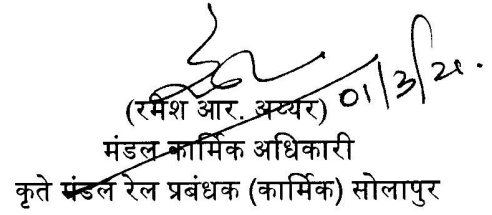 (रमेश आर. अय्यर) 01/3/21.
मंडल कार्मिक अधिकारी
कृते मंडल रेल प्रबंधक (कार्मिक) सोलापुर